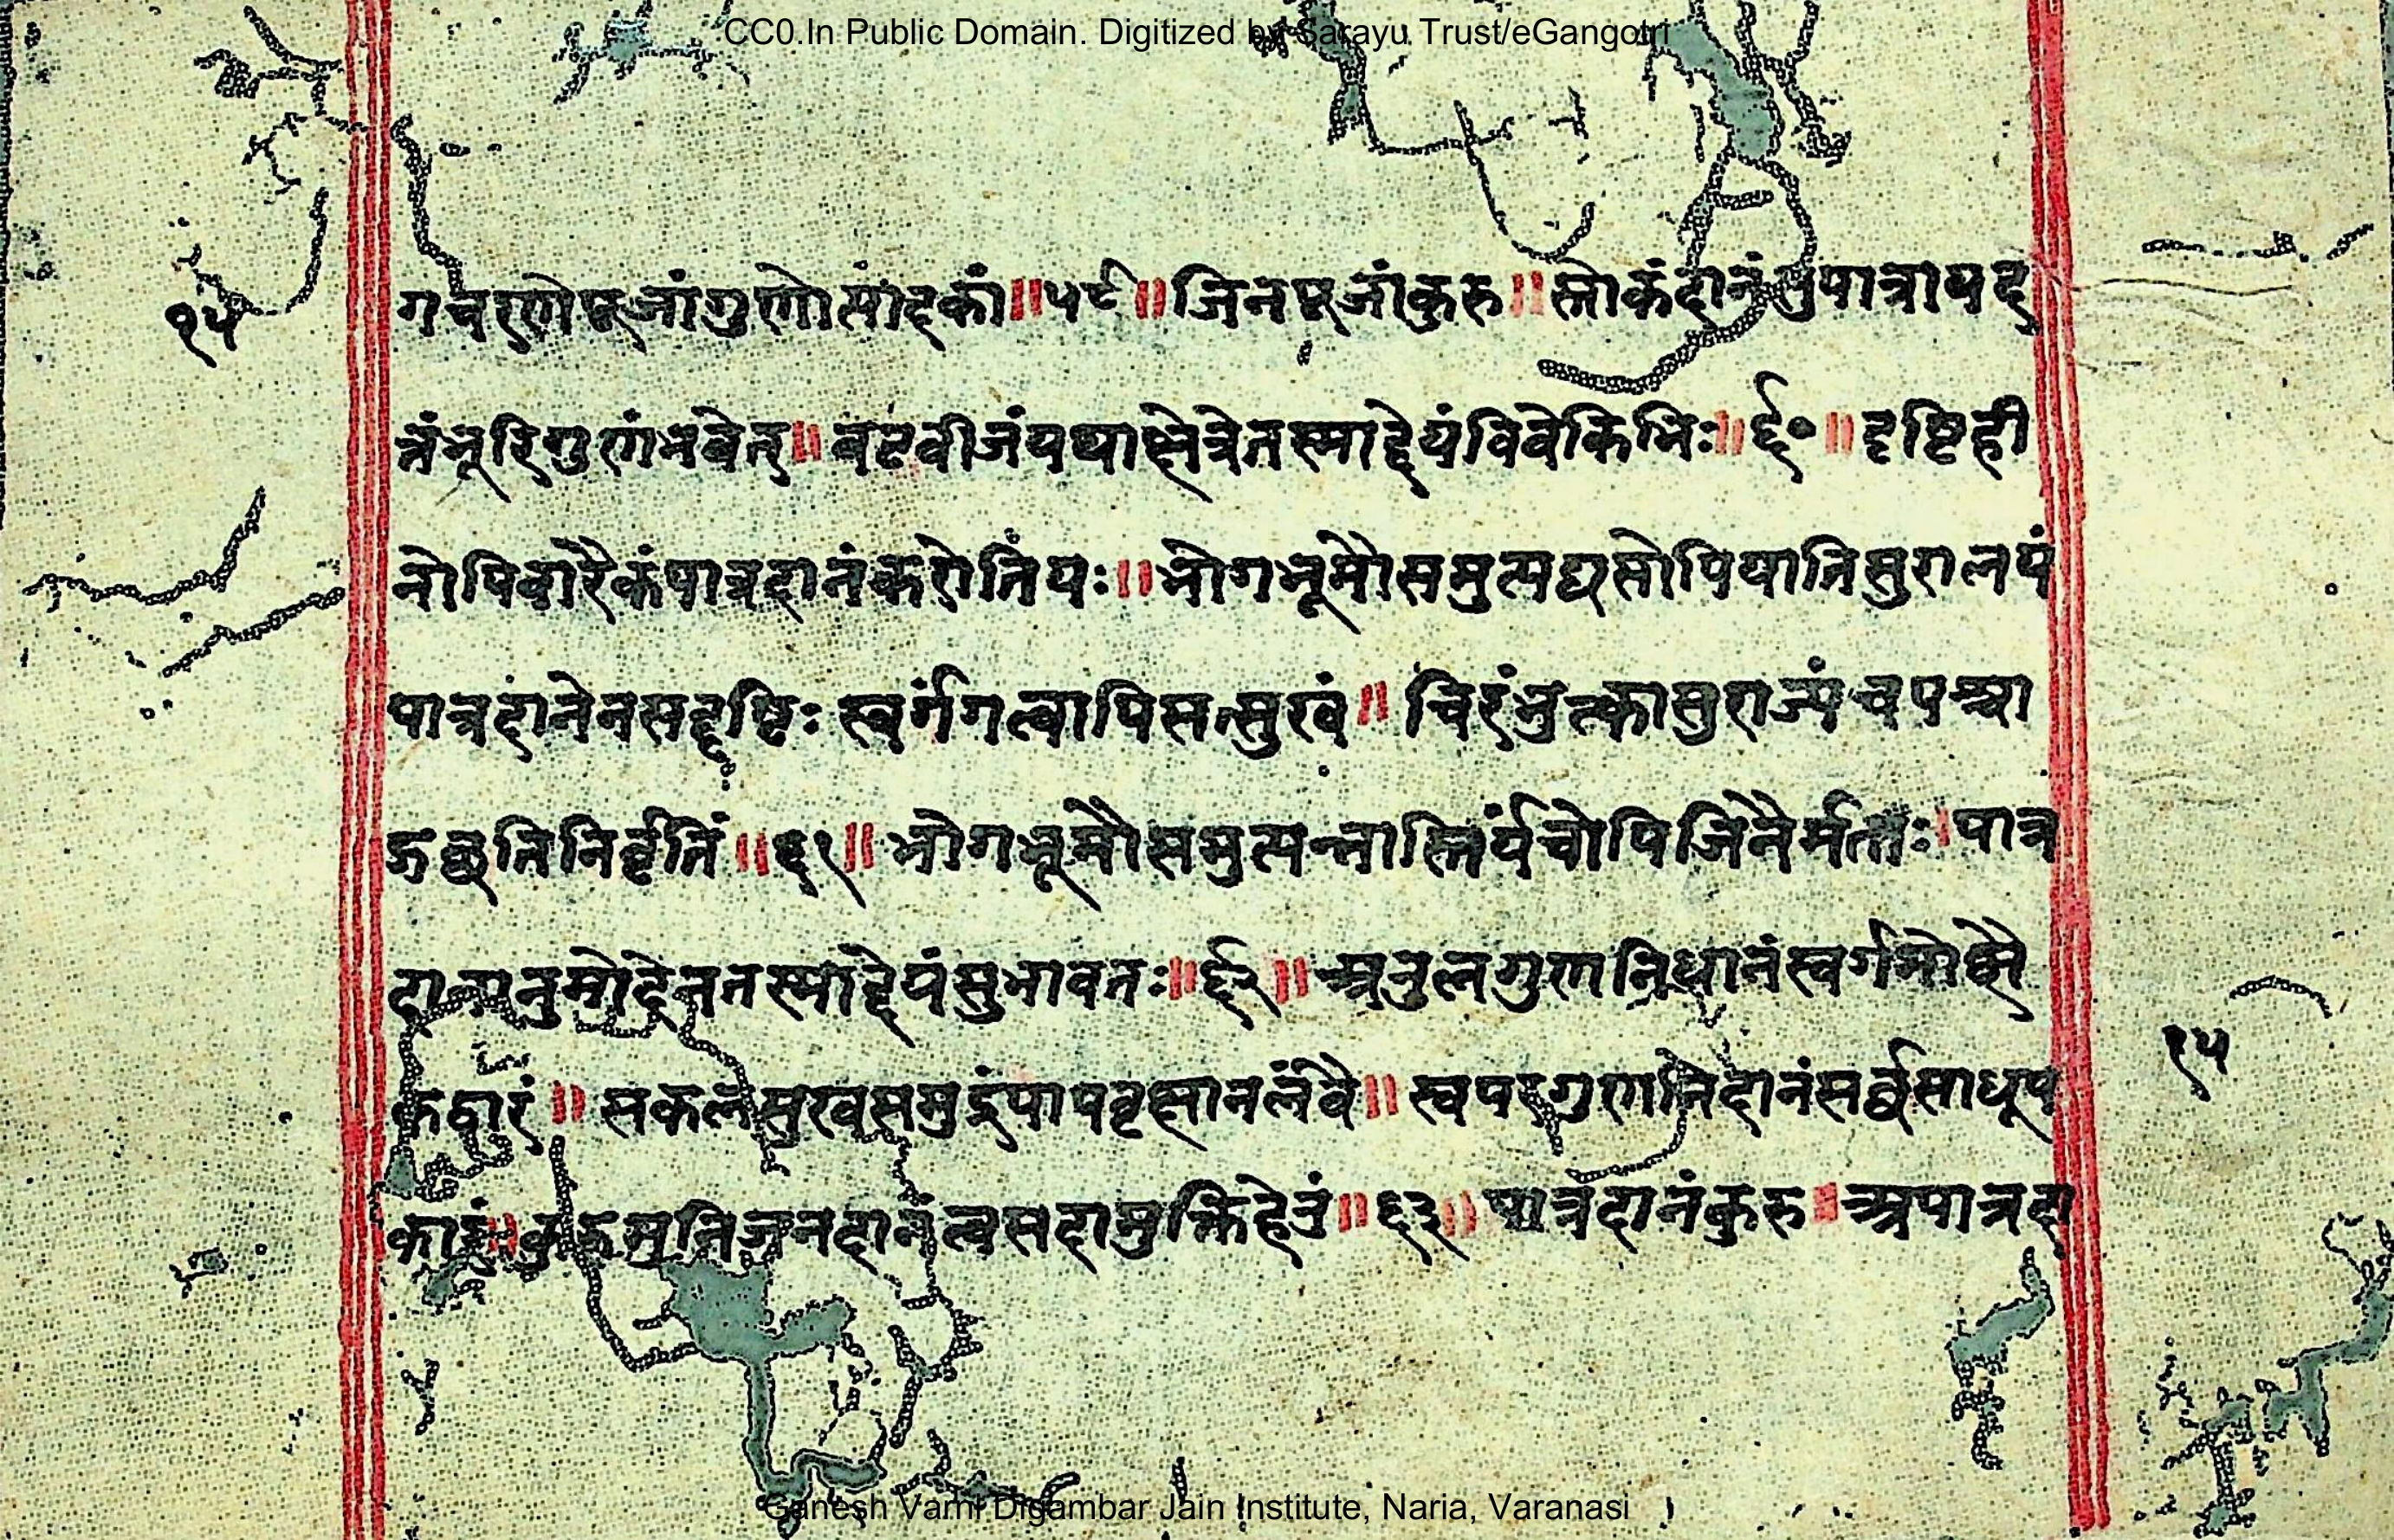 CC0.In Public Domain. Digitized by Sarayu Trust/eGangotri
१५
गचरणेपूजांगुणोसांद्रकां॥५९॥जिनपूजांकुरु॥स्तोकंदानंसुपात्रायद
त्तंभूरिगुणंभवेत्॥वटवीजंयथाक्षेत्रेतस्माद्देयंविवेकिभिः॥६०॥दृष्टिही
नोपिवारैकंपात्रदानंकरोतियः॥भोगभूमौसमुत्पद्यसोपियातिसुरालयं
पात्रदानेनसद्दृष्टिः स्वर्गंगत्वापिसत्सुखं॥चिरंभुत्कासुराज्यंचपश्चा
द्गछतिनिर्वृतिं॥६१॥भोगभूमौसमुत्पन्नास्तिर्यंचोपिजिनैर्मताः।पात्र
दानानुमोदेनतस्माद्देयंसुभावतः॥६२॥अतुलगुणनिधानंस्वर्गमोक्षै
कद्वारं॥सकलसुखसमुद्रंपापवृक्षानलंवै॥स्वपरगुणनिदानंसर्वसाधूप
कारं॥कुरुमुनिजनदानंत्वसदामुक्तिहेतुं॥६३॥पात्रदानंकुरु॥अपात्रदा
१५
Ganesh Varni Digambar Jain Institute, Naria, Varanasi